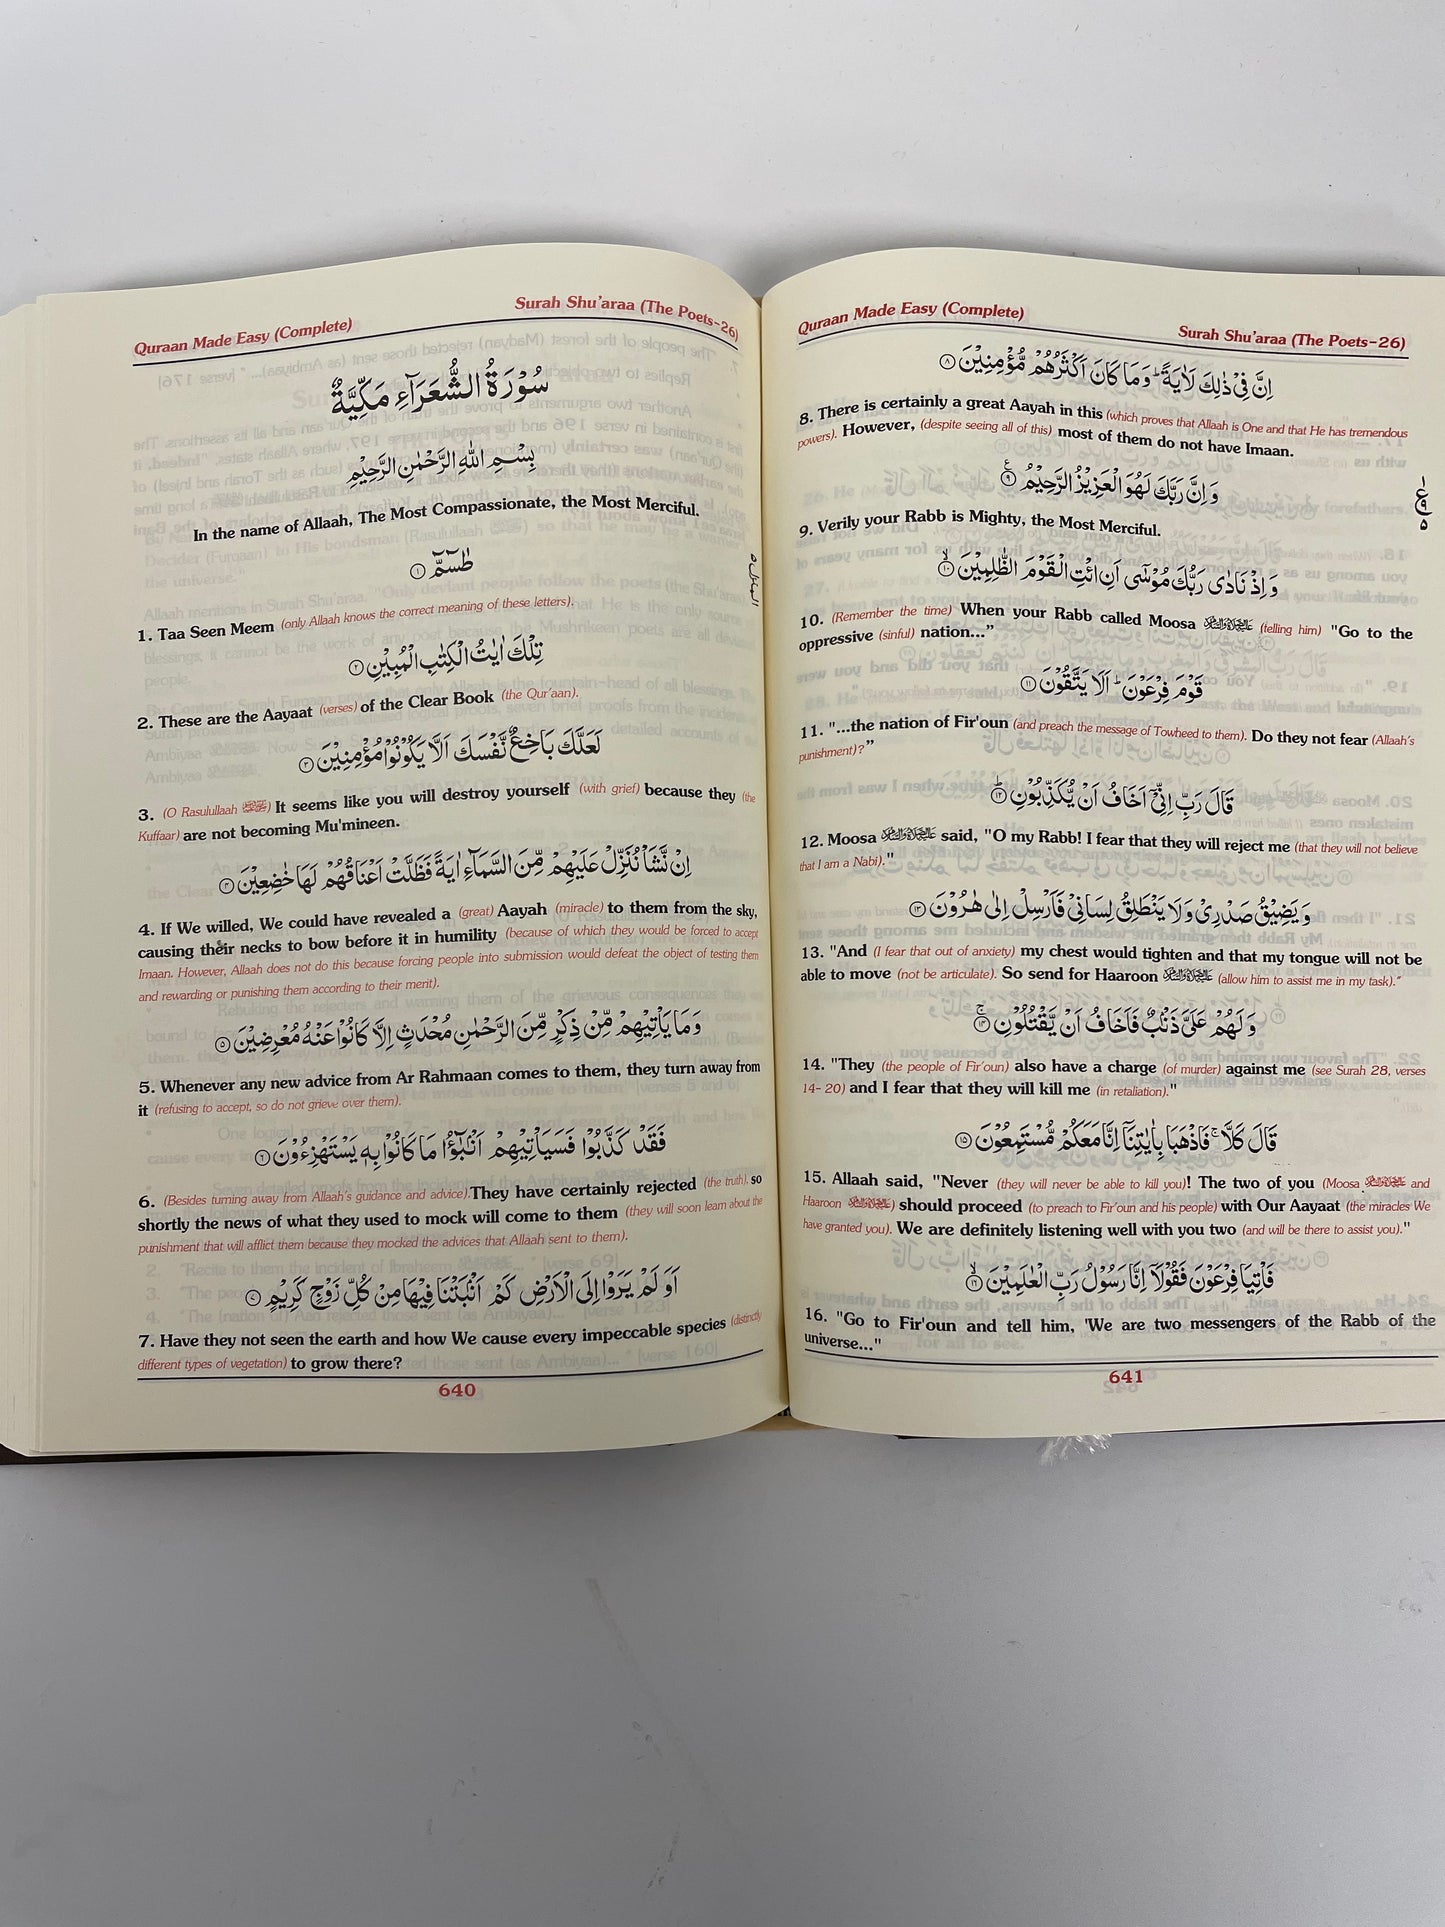 Quraan Made Easy (Complete)
Surah Shu'araa (The Poets-26)
سُوْرَةُ الشُّعَرَآءِ مَكِّيَّةٌ
بِسْمِ اللّٰهِ الرَّحْمٰنِ الرَّحِيْمِ
In the name of Allaah, The Most Compassionate, the Most Merciful.
طٰسٓمّٓ ۝۱
1. Taa Seen Meem (only Allaah knows the correct meaning of these letters).
تِلْكَ اٰيٰتُ الْكِتٰبِ الْمُبِيْنِ ۝۲
2. These are the Aayaat (verses) of the Clear Book (the Qur'aan).
لَعَلَّكَ بَاخِعٌ نَّفْسَكَ اَلَّا يَكُوْنُوْا مُؤْمِنِيْنَ ۝۳
3. (O Rasulullaah ﷺ) It seems like you will destroy yourself (with grief) because they (the
Kuffaar) are not becoming Mu'mineen.
اِنْ نَّشَاْ نُنَزِّلْ عَلَيْهِمْ مِّنَ السَّمَآءِ اٰيَةً فَظَلَّتْ اَعْنَاقُهُمْ لَهَا خٰضِعِيْنَ ۝۴
4. If We willed, We could have revealed a (great) Aayah (miracle) to them from the sky,
causing their necks to bow before it in humility (because of which they would be forced to accept
Imaan. However, Allaah does not do this because forcing people into submission would defeat the object of testing them
and rewarding or punishing them according to their merit).
وَمَا يَاْتِيْهِمْ مِّنْ ذِكْرٍ مِّنَ الرَّحْمٰنِ مُحْدَثٍ اِلَّا كَانُوْا عَنْهُ مُعْرِضِيْنَ ۝۵
5. Whenever any new advice from Ar Rahmaan comes to them, they turn away from
it (refusing to accept, so do not grieve over them).
فَقَدْ كَذَّبُوْا فَسَيَاْتِيْهِمْ اَنْۢبٰٓؤُا مَا كَانُوْا بِهٖ يَسْتَهْزِءُوْنَ ۝۶
6. (Besides turning away from Allaah's guidance and advice).They have certainly rejected (the truth). so
shortly the news of what they used to mock will come to them (they will soon learn about the
punishment that will afflict them because they mocked the advices that Allaah sent to them).
اَوَلَمْ يَرَوْا اِلَى الْاَرْضِ كَمْ اَنْۢبَتْنَا فِيْهَا مِنْ كُلِّ زَوْجٍ كَرِيْمٍ ۝۷
7. Have they not seen the earth and how We cause every impeccable species (distinctly
different types of vegetation) to grow there?
640
Quraan Made Easy (Complete)
Surah Shu'araa (The Poets-26)
اِنَّ فِيْ ذٰلِكَ لَاٰيَةً ؕ وَمَا كَانَ اَكْثَرُهُمْ مُّؤْمِنِيْنَ ۝۸
8. There is certainly a great Aayah in this (which proves that Allaah is One and that He has tremendous
powers). However, (despite seeing all of this) most of them do not have Imaan.
وَاِنَّ رَبَّكَ لَهُوَ الْعَزِيْزُ الرَّحِيْمُ ۝۹
9. Verily your Rabb is Mighty, the Most Merciful.
وَاِذْ نَادٰى رَبُّكَ مُوْسٰٓى اَنِ ائْتِ الْقَوْمَ الظّٰلِمِيْنَ ۝۱۰
10. (Remember the time) When your Rabb called Moosa (telling him) "Go to the
oppressive (sinful) nation..."
قَوْمَ فِرْعَوْنَ ؕ اَلَا يَتَّقُوْنَ ۝۱۱
11. "...the nation of Fir'oun (and preach the message of Towheed to them). Do they not fear (Allaah's
punishment)?"
قَالَ رَبِّ اِنِّيْٓ اَخَافُ اَنْ يُّكَذِّبُوْنِ ۝۱۲
12. Moosa said, "O my Rabb! I fear that they will reject me (that they will not believe
that I am a Nabi)."
وَيَضِيْقُ صَدْرِيْ وَلَا يَنْطَلِقُ لِسَانِيْ فَاَرْسِلْ اِلٰى هٰرُوْنَ ۝۱۳
13. "And (I fear that out of anxiety) my chest would tighten and that my tongue will not be
able to move (not be articulate). So send for Haaroon (allow him to assist me in my task)."
وَلَهُمْ عَلَيَّ ذَنْۢبٌ فَاَخَافُ اَنْ يَّقْتُلُوْنِ ۝۱۴
14. "They (the people of Fir'oun) also have a charge (of murder) against me (see Surah 28, verses
14- 20) and I fear that they will kill me (in retaliation)."
قَالَ كَلَّا ۚ فَاذْهَبَا بِاٰيٰتِنَآ اِنَّا مَعَكُمْ مُّسْتَمِعُوْنَ ۝۱۵
15. Allaah said, "Never (they will never be able to kill you)! The two of you (Moosa and
Haaroon ) should proceed (to preach to Fir'oun and his people) with Our Aayaat (the miracles We
have granted you). We are definitely listening well with you two (and will be there to assist you)."
فَاْتِيَا فِرْعَوْنَ فَقُوْلَآ اِنَّا رَسُوْلُ رَبِّ الْعٰلَمِيْنَ ۝۱۶
16. "Go to Fir'oun and tell him, 'We are two messengers of the Rabb of the
universe..."
641